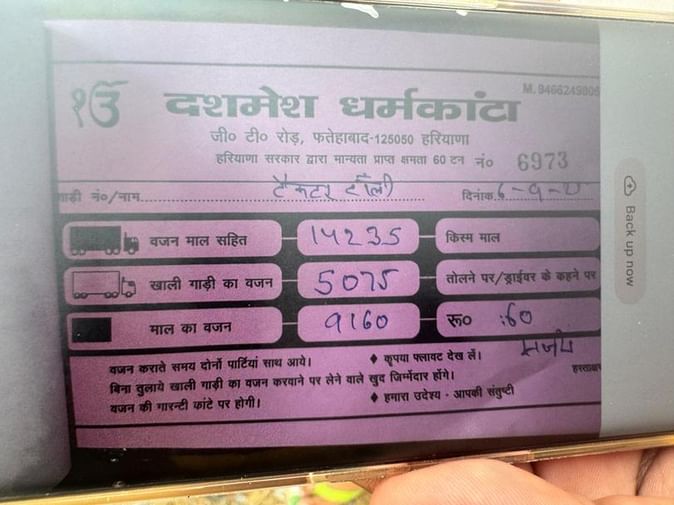 ੧ੳ दशमेश धर्मकांटा M. 9466249806
जी० टी० रोड़, फतेहाबाद-125050 हरियाणा
हरियाणा सरकार द्वारा मान्यता प्राप्त क्षमता 60 टन नं० 6973
गाड़ी नं०/नाम टैक्टर ट्रौली दिनांक 6-9-2
वजन माल सहित 14235 किस्म माल
खाली गाड़ी का वजन 5075 तोलने पर/ड्राईवर के कहने पर
माल का वजन 9160 रू० :60
वजन कराते समय दोनों पार्टियां साथ आये। ♦ कृपया फ्लावट देख लें।
बिना तुलाये खाली गाड़ी का वजन करवाने पर लेने वाले खुद जिम्मेदार होंगे। हस्ताक्षर
वजन की गारन्टी कांटे पर होगी। ♦ हमारा उदेश्य - आपकी संतुष्टी
Back up now